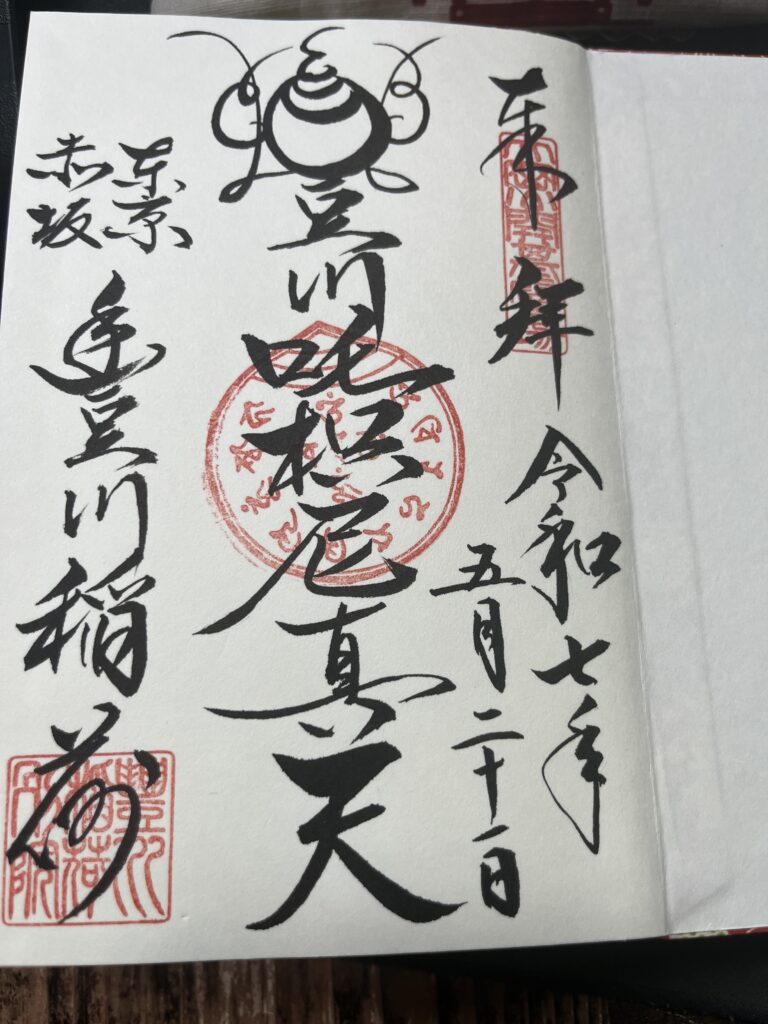 来拝
令和七年
五月二十一日
豊川吒枳尼真天
東京
赤坂
豊川稲荷